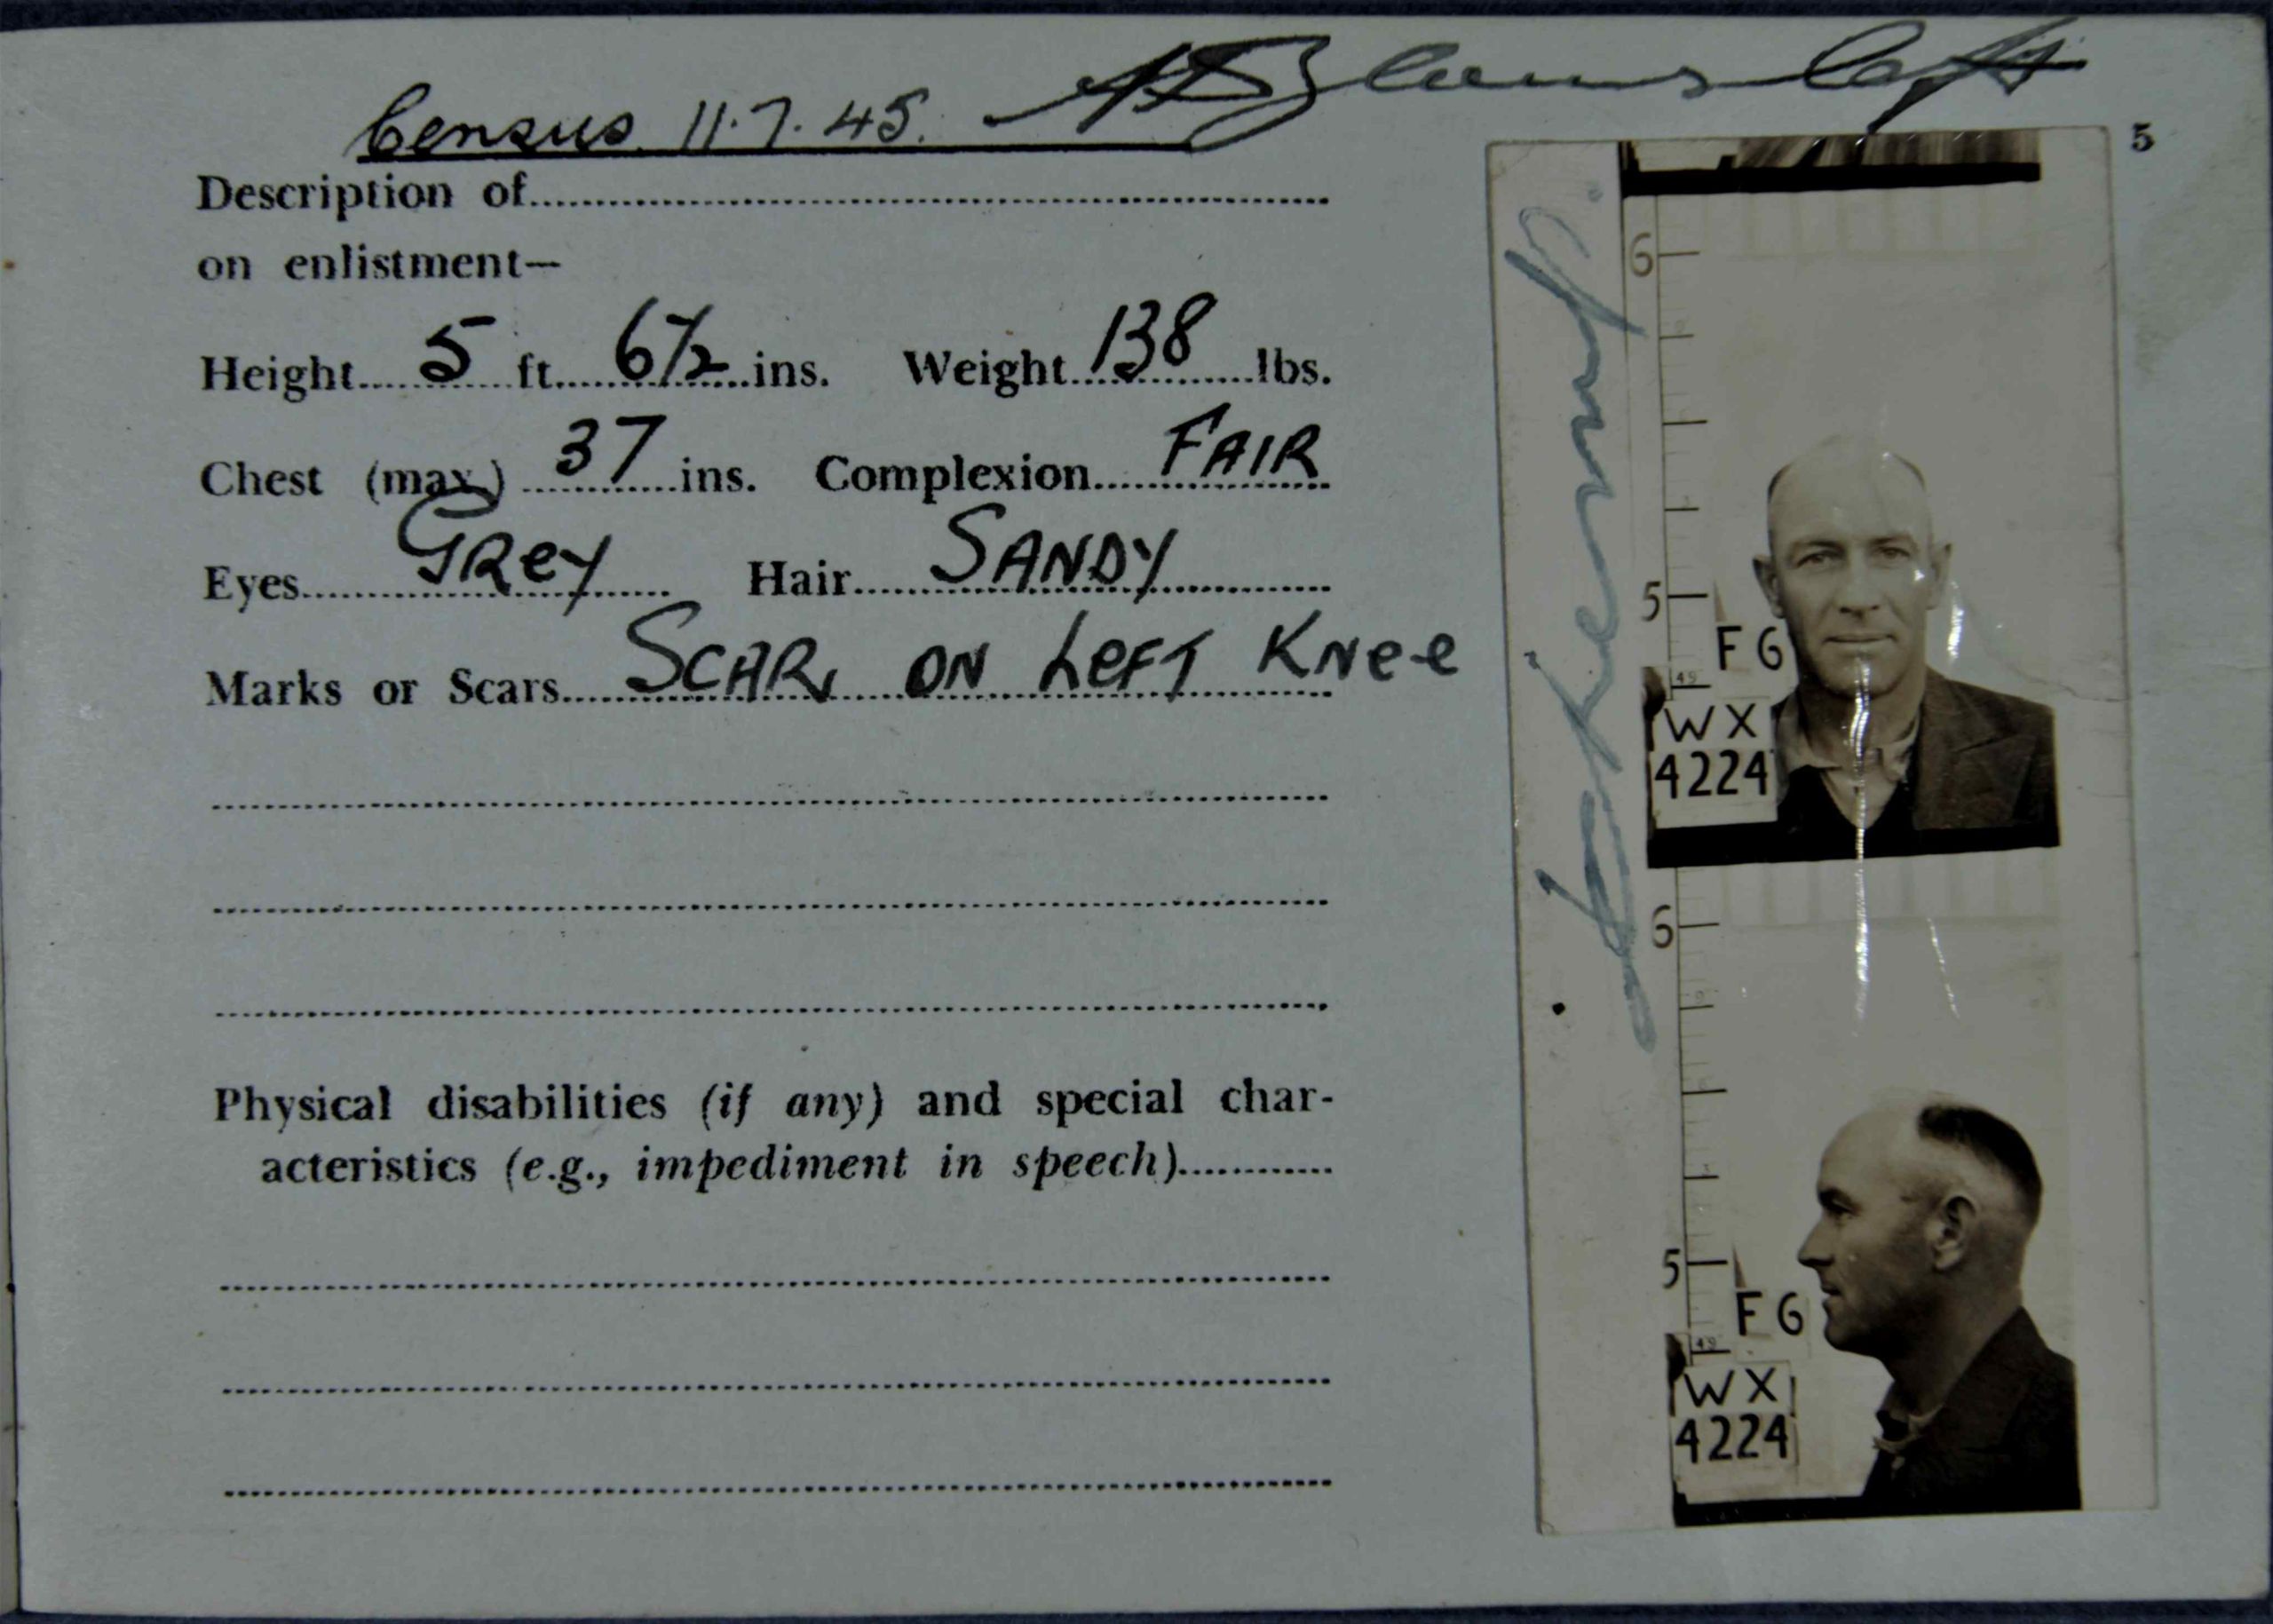 Census 11.7.45.
5
Description of
on enlistment—
Height 5 ft. 6½ ins. Weight 138 lbs.
Chest (max.) 37 ins. Complexion FAIR
Eyes GREY Hair SANDY
Marks or Scars SCAR ON LEFT KNEE
Physical disabilities (if any) and special char-
acteristics (e.g., impediment in speech)
6
5
F G
WX
4224
6
5
F G
WX
4224